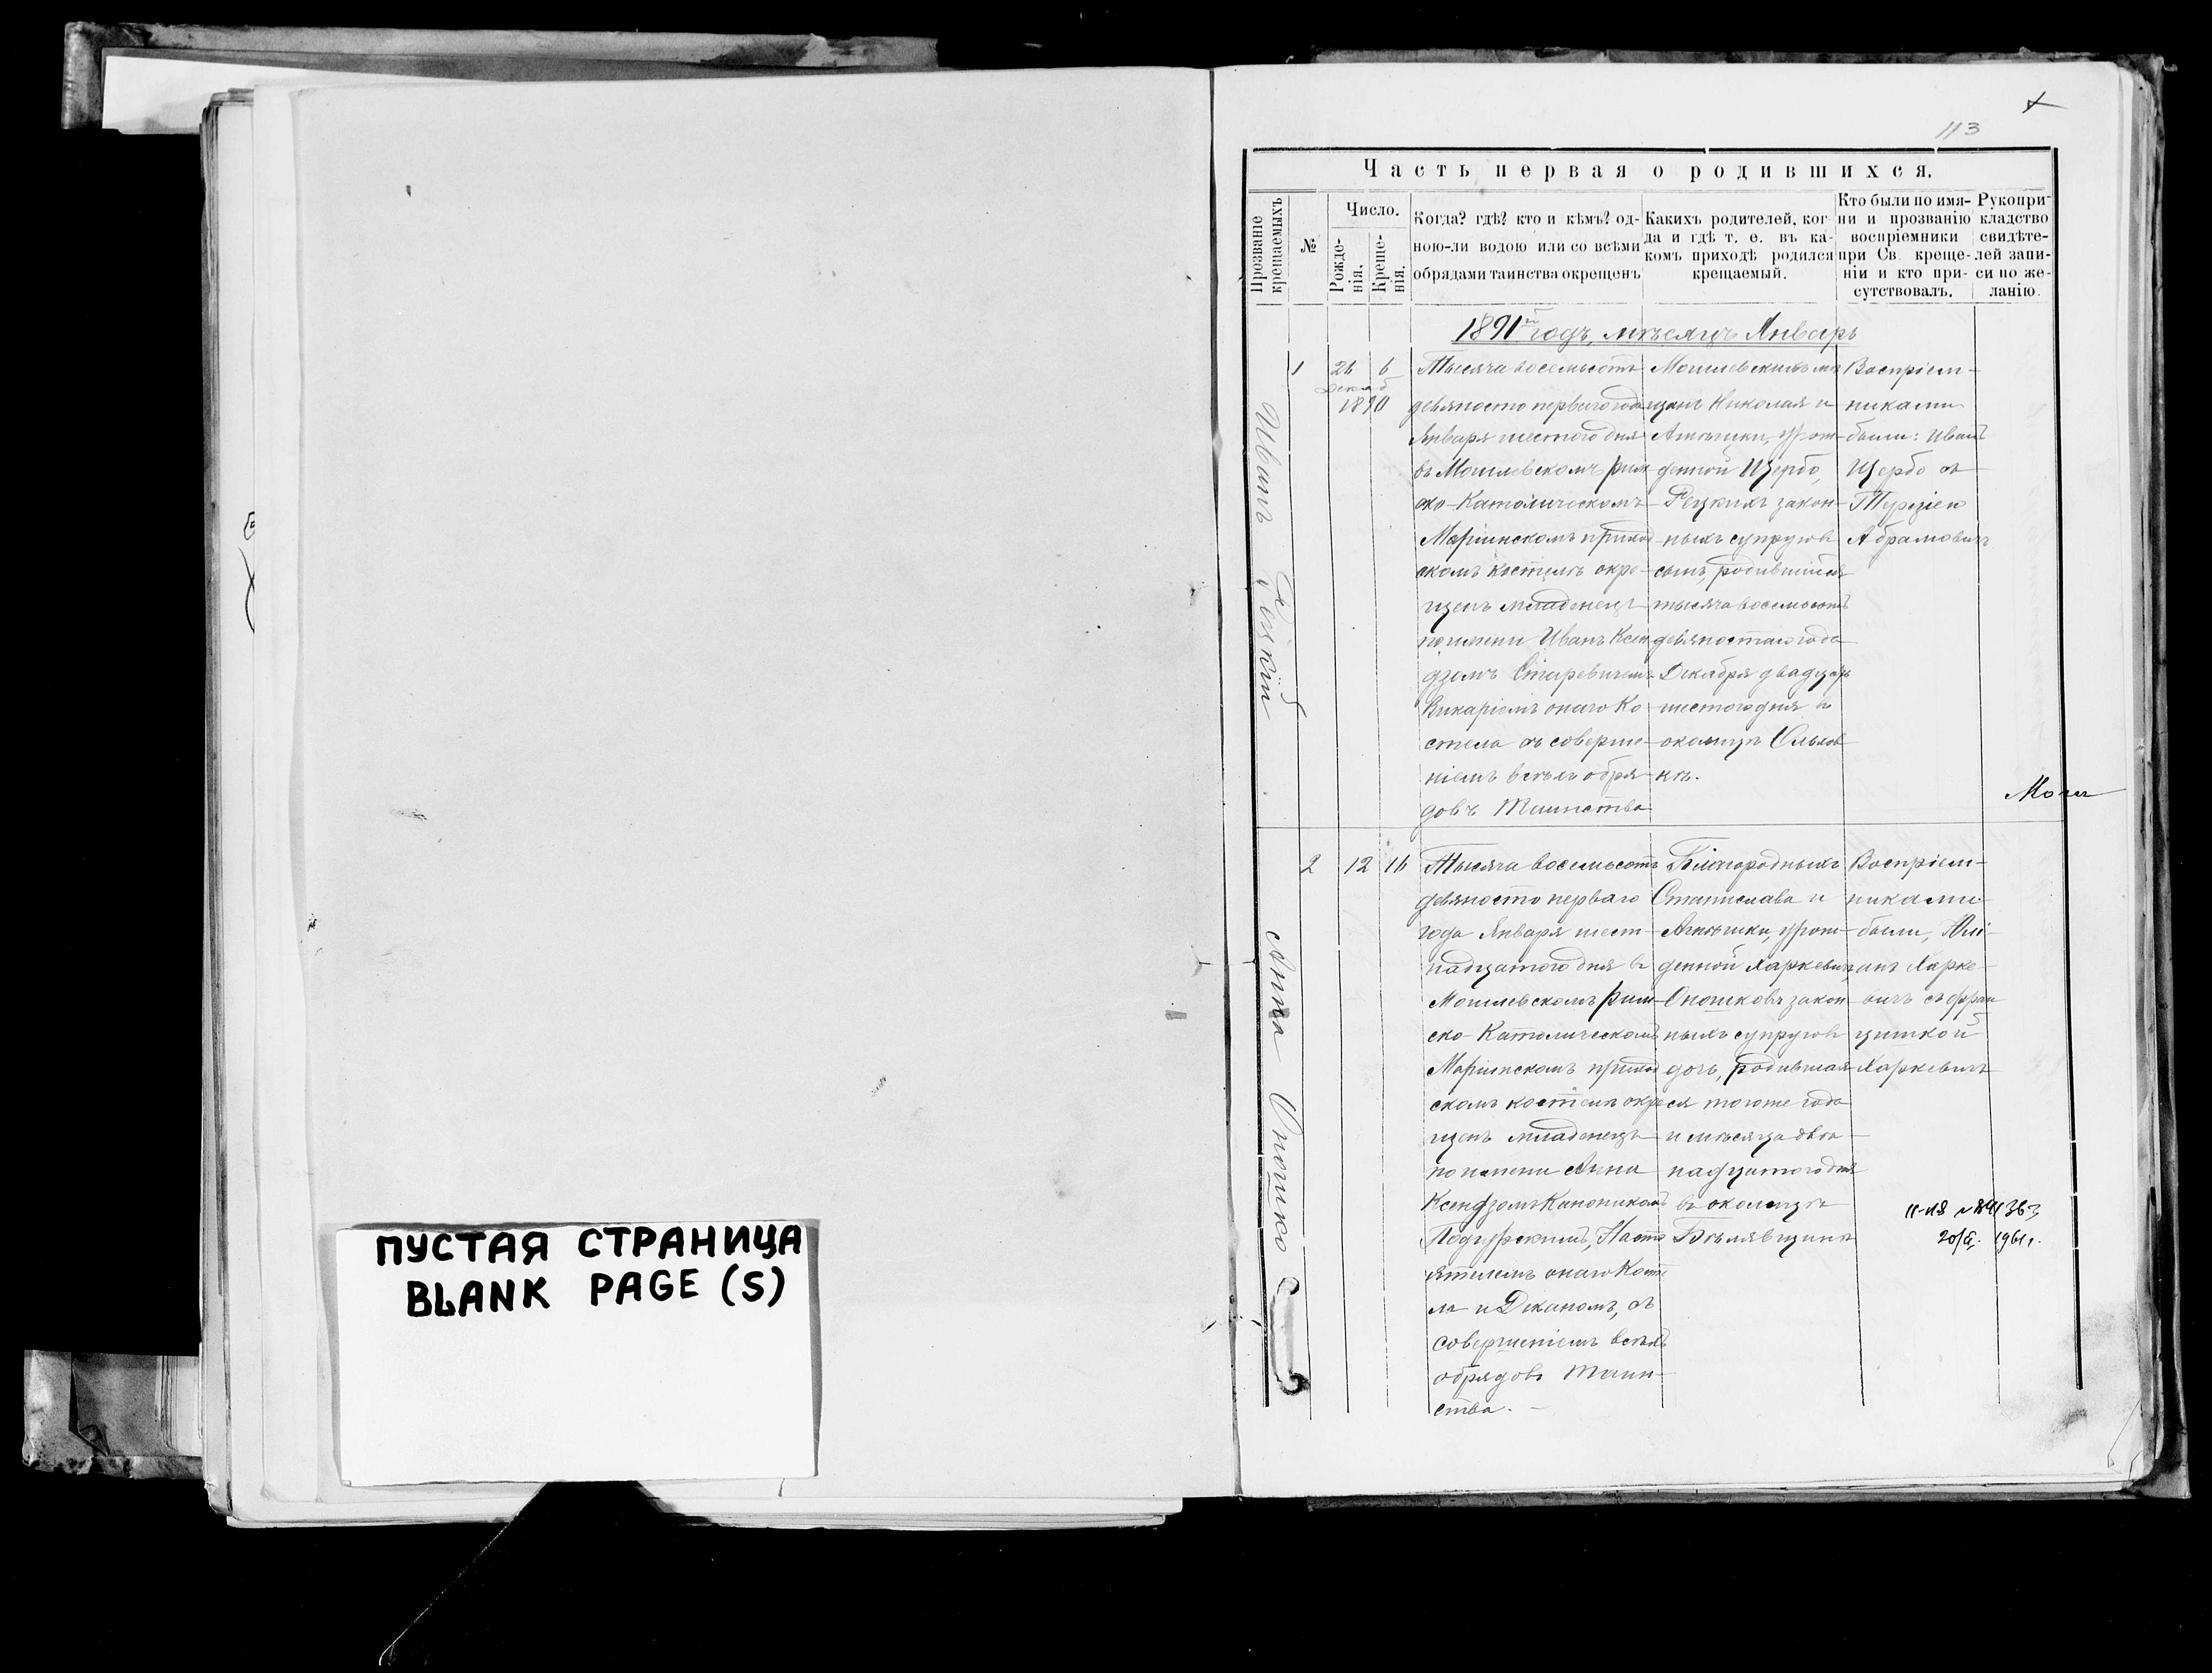 ПУСТАЯ СТРАНИЦА
BLANK PAGE (S)
113
Часть первая о родившихся.
Прозваніе крещаемыхъ
№
Число.
Рожде-
нія.
Креще-
нія.
Когда? гдѣ? кто и кѣмъ? од-
ною-ли водою или со всѣми
обрядами таинства окрещенъ
Какихъ родителей, ког-
да и гдѣ т. е. въ ка-
комъ приходѣ родился
крещаемый.
Кто были по имя-
ни и прозванію
воспріемники
при Св. креще-
ніи и кто при-
сутствовалъ.
Рукопри-
кладство
свидѣте-
лей запи-
си по же-
ланію.
1891й годъ, мѣсяцъ Январь
Иванъ
1
26 6
декаб
1890
Тысяча восемьсотъ
девяносто перваго года
Января шестого дня
въ Могилевскомъ рим
ско-Католическомъ
Маріинскомъ приход
скомъ костелѣ окре-
щенъ младенецъ
по имени Иванъ Ксен
дзомъ Старевичемъ
Викаріемъ онаго Ко
стела съ соверше-
ніемъ всѣхъ обря-
довъ Таинства
Могилевскихъ мѣ
щанъ Николая и
рож-
денной Щербо,
Рецкихъ закон-
ныхъ супруговъ
сынъ, родившійся
тысяча восемьсотъ
девяностаго года
Декабря двадцать
шестого дня въ
околицѣ Ольхов
кѣ.
Воспріем-
никами
были: Иванъ
Щербо съ
Абрамовичъ
Анна Оношко
2
12 16
Тысяча восемьсотъ
девяносто перваго
года Января шест-
надцатого дня въ
Могилевскомъ Рим-
ско-Католическомъ
Маріинскомъ приход
скомъ костелѣ окре
щенъ младенецъ
по имени Анна
Ксендзомъ Каноникомъ
Насто
ятелемъ онаго Косте
ла и Деканомъ, съ
совершеніемъ всѣхъ
обрядовъ Таин-
ства.
Благородныхъ
Станислава и
урож-
денной Харкевичъ,
Оношковъ закон
ныхъ супруговъ
дочь, родившая
ся того же года
и мѣсяца два-
надцатого дня
въ околицѣ
Бѣлявщинѣ
Воспріем-
никами
были, Юлі-
анъ Харке-
вичъ съ Фран
цишкой
Харкевичъ
1961 г.